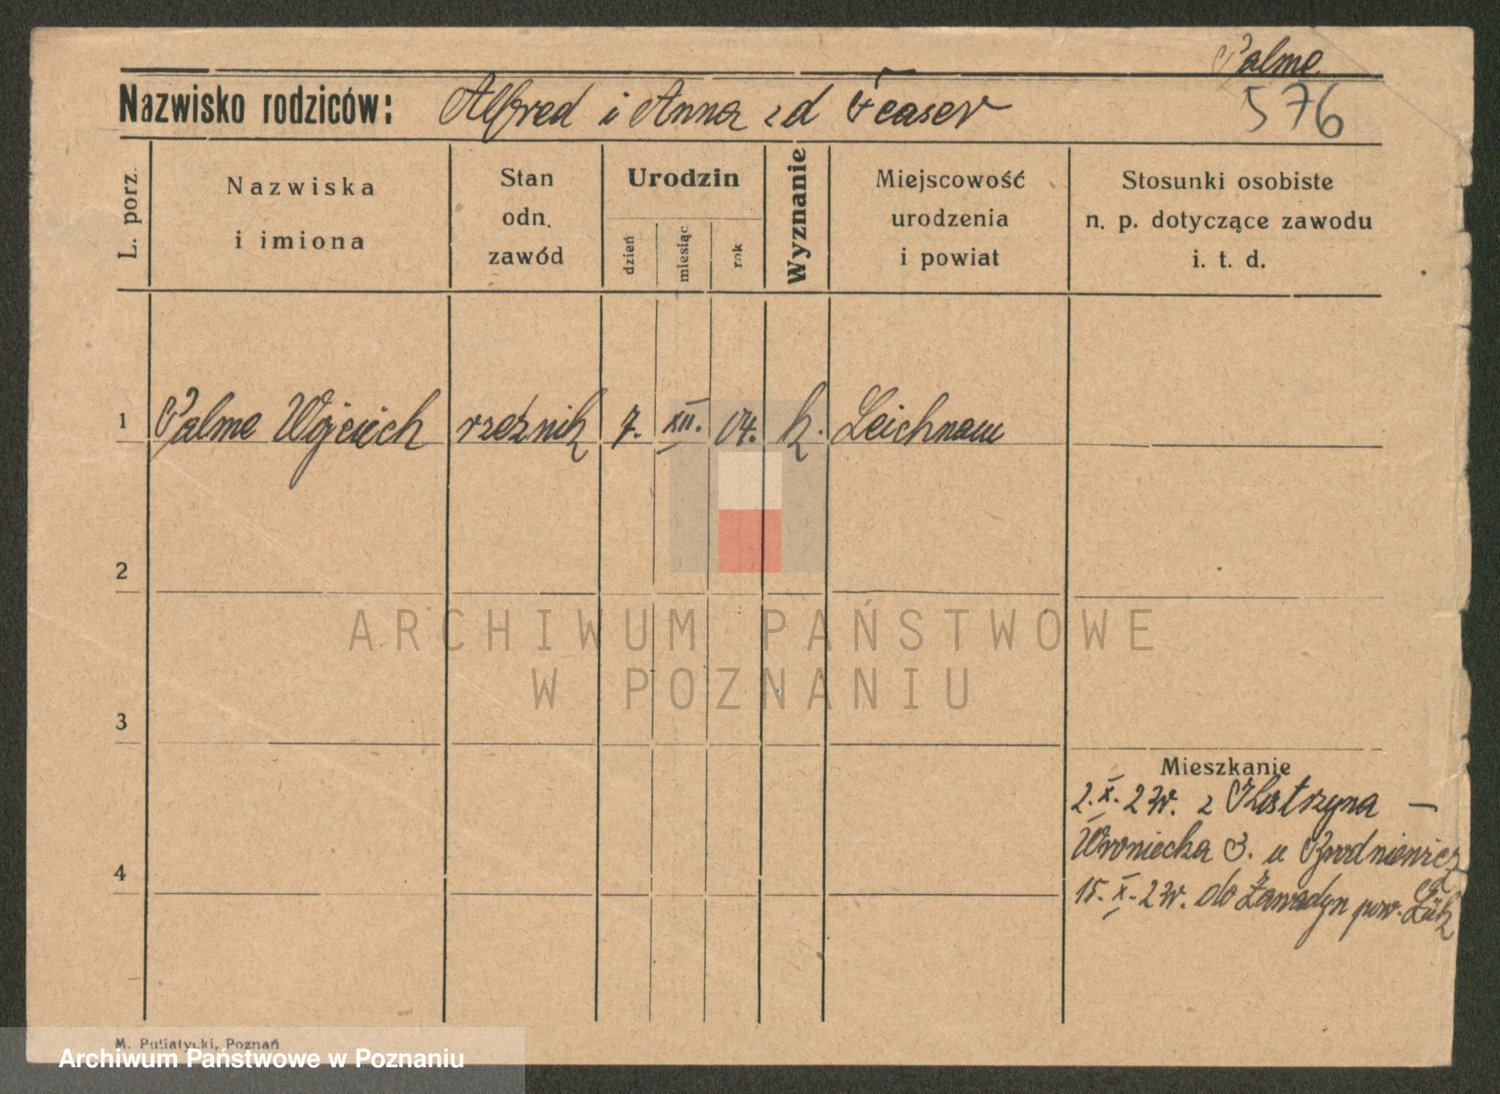 Palme
576
Nazwisko rodziców: Alfred i Anna zd
L. porz.
Nazwiska
i imiona
Stan
odn.
zawód
Urodzin
dzień
miesiąc
rok
Wyznanie
Miejscowość
urodzenia
i powiat
Stosunki osobiste
n. p. dotyczące zawodu
i. t. d.
1 Palme Wojciech rzeźnik 7. XII. 04. k. Leichnam
2
3
4
Mieszkanie
2. X. 23r. z Kostrzyna —
Wroniecka 3. u Brodniewicz
15. X. 23r. do pow.
ARCHIWUM PAŃSTWOWE
W POZNANIU
M. Putiatycki, Poznań
Archiwum Państwowe w Poznaniu